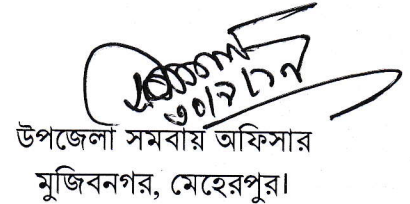 উপজেলা সমবায় অফিসার
মুজিবনগর, মেহেরপুর।